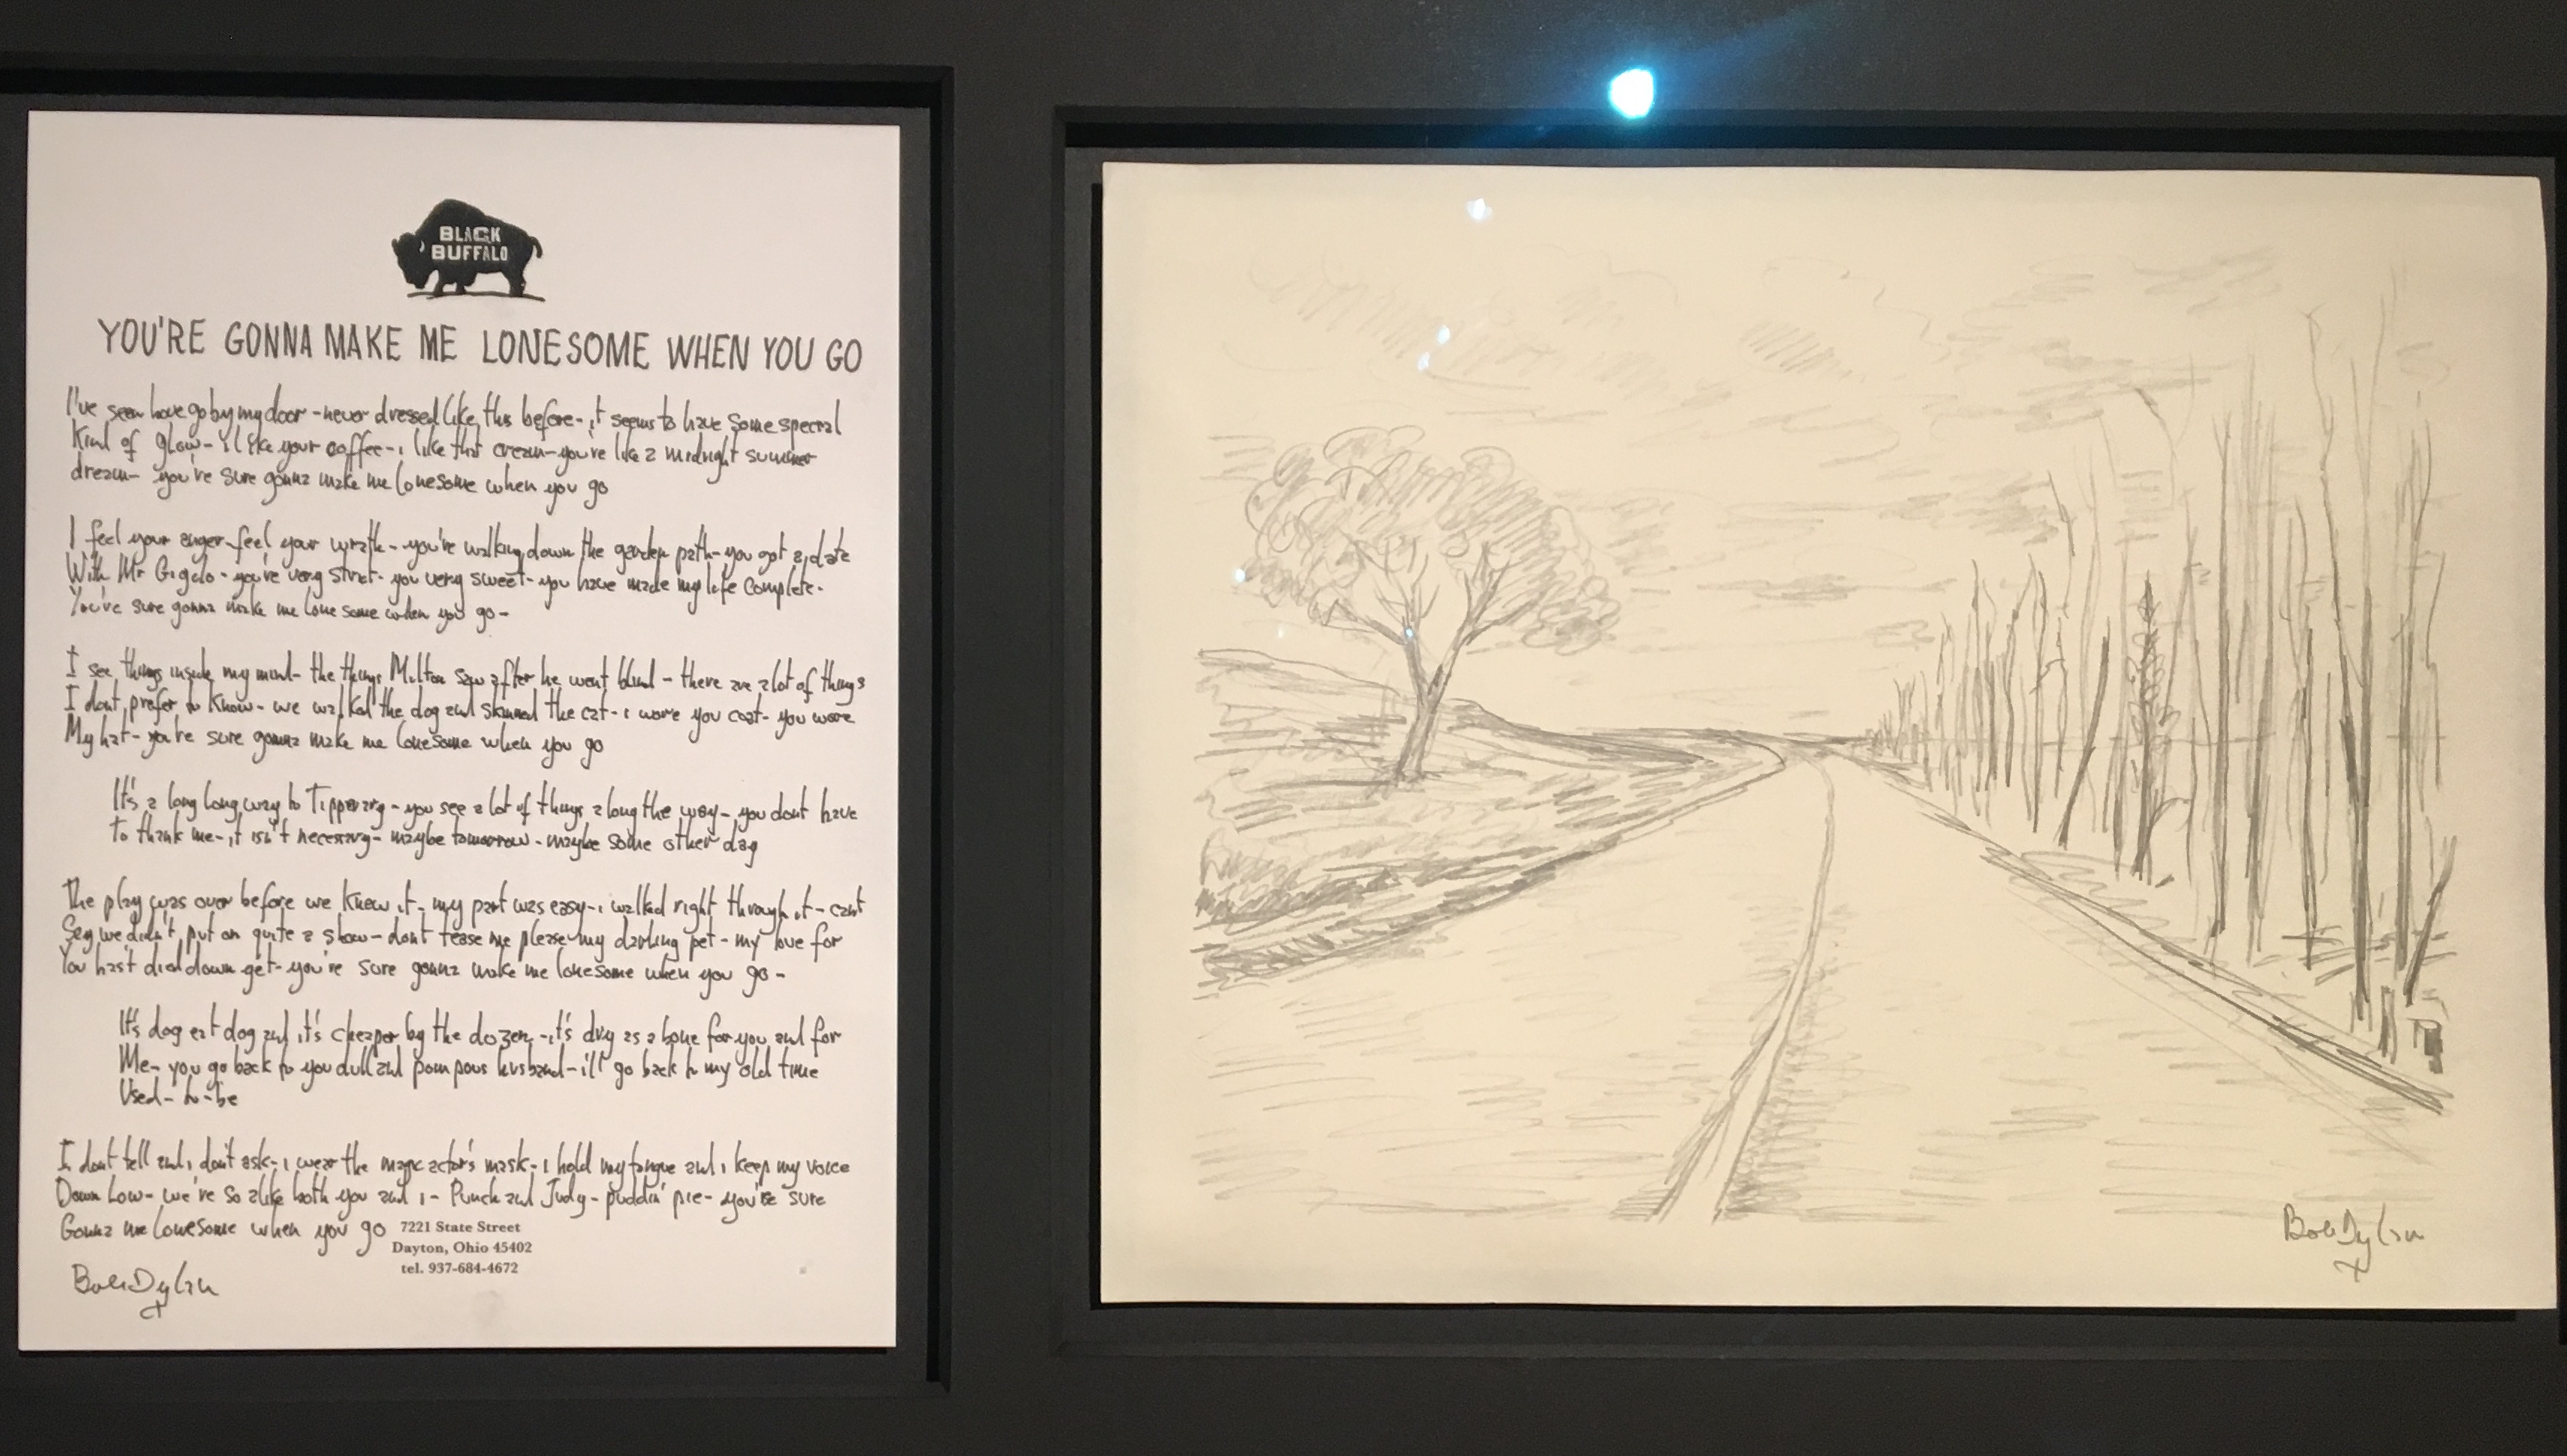 BLACK
BUFFALO
YOU'RE GONNA MAKE ME LONESOME WHEN YOU GO
I've seen love go by my door - never dressed like this before - it seems to have some special
Kind of glow - i like your coffee - i like that cream - you're like a midnight summer
dream - you're sure gonna make me lonesome when you go
I feel your anger - feel your wrath - you're walking down the garden path - you got a date
With Mr Gigolo - you're very strict - you very sweet - you have made my life complete -
You're sure gonna make me lonesome when you go -
I see things inside my mind - the things Milton saw after he went blind - there are a lot of things
I dont prefer to know - we walked the dog and skinned the cat - i wore you coat - you wore
My hat - you're sure gonna make me lonesome when you go
It's a long long way to Tipperary - you see a lot of things along the way - you dont have
To thank me - it isn't necessary - maybe tomorrow - maybe some other day
The play was over before we knew it - my part was easy - i walked right through it - cant
Say we didn't put on quite a show - dont tease me please my darling pet - my love for
You hasn't died down yet - you're sure gonna make me lonesome when you go -
It's dog eat dog and it's cheaper by the dozen - it's dry as a bone for you and for
Me - you go back to you dull and pompous husband - i'll go back to my old time
Used - to - be
I dont tell and i don't ask - i wear the magic actor's mask - i hold my tongue and i keep my voice
Down Low - we're so alike both you and i - Punch and Judy - puddin' pie - you're sure
Gonna me lonesome when you go
7221 State Street
Dayton, Ohio 45402
tel. 937-684-4672
Bob Dylan
Bob Dylan